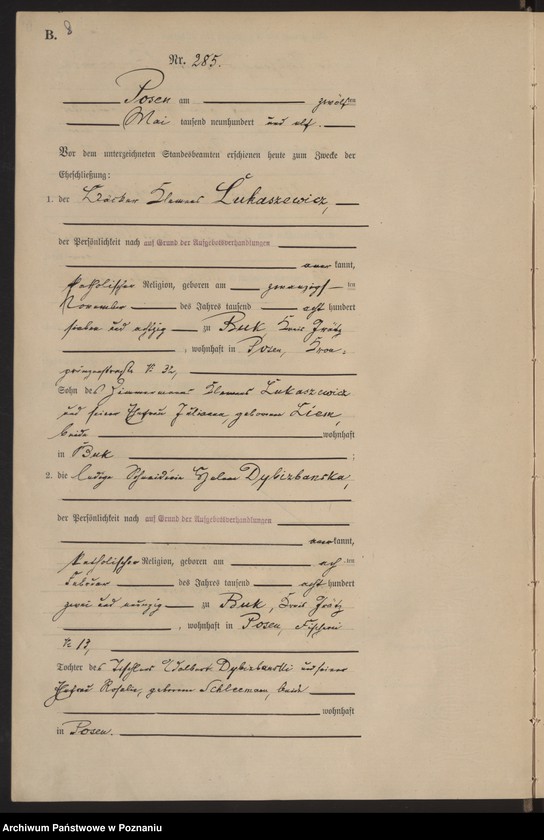 B. 8
Nr. 285.
Posen am zwölften
Mai tausend neunhundert und elf.
Vor dem unterzeichneten Standesbeamten erschienen heute zum Zwecke der
Eheschließung:
1. der Bäcker Klemens Lukaszewicz,
der Persönlichkeit nach auf Grund der Aufgebotsverhandlungen
anerkannt,
katholischer Religion, geboren am zwanzigsten
November des Jahres tausend acht hundert
sieben und achtzig zu Buk, Kreis Grätz
, wohnhaft in Posen, Kron-
prinzenstraße N 32,
Sohn des Zimmermanns Klemens Lukaszewicz
und seiner Ehefrau Julianna, geborenen Liem,
beide wohnhaft
in Buk ;
2. die ledige Schneiderin Helene Dybizbanska,
der Persönlichkeit nach auf Grund der Aufgebotsverhandlungen
anerkannt,
katholischer Religion, geboren am achten
Februar des Jahres tausend acht hundert
zwei und neunzig zu Buk, Kreis Grätz
, wohnhaft in Posen, Fischerei
N 13,
Tochter des Tischlers Adalbert Dybizbanski und seiner
Ehefrau Rosalie, geborenen beide
wohnhaft
in Posen.
Archiwum Państwowe w Poznaniu